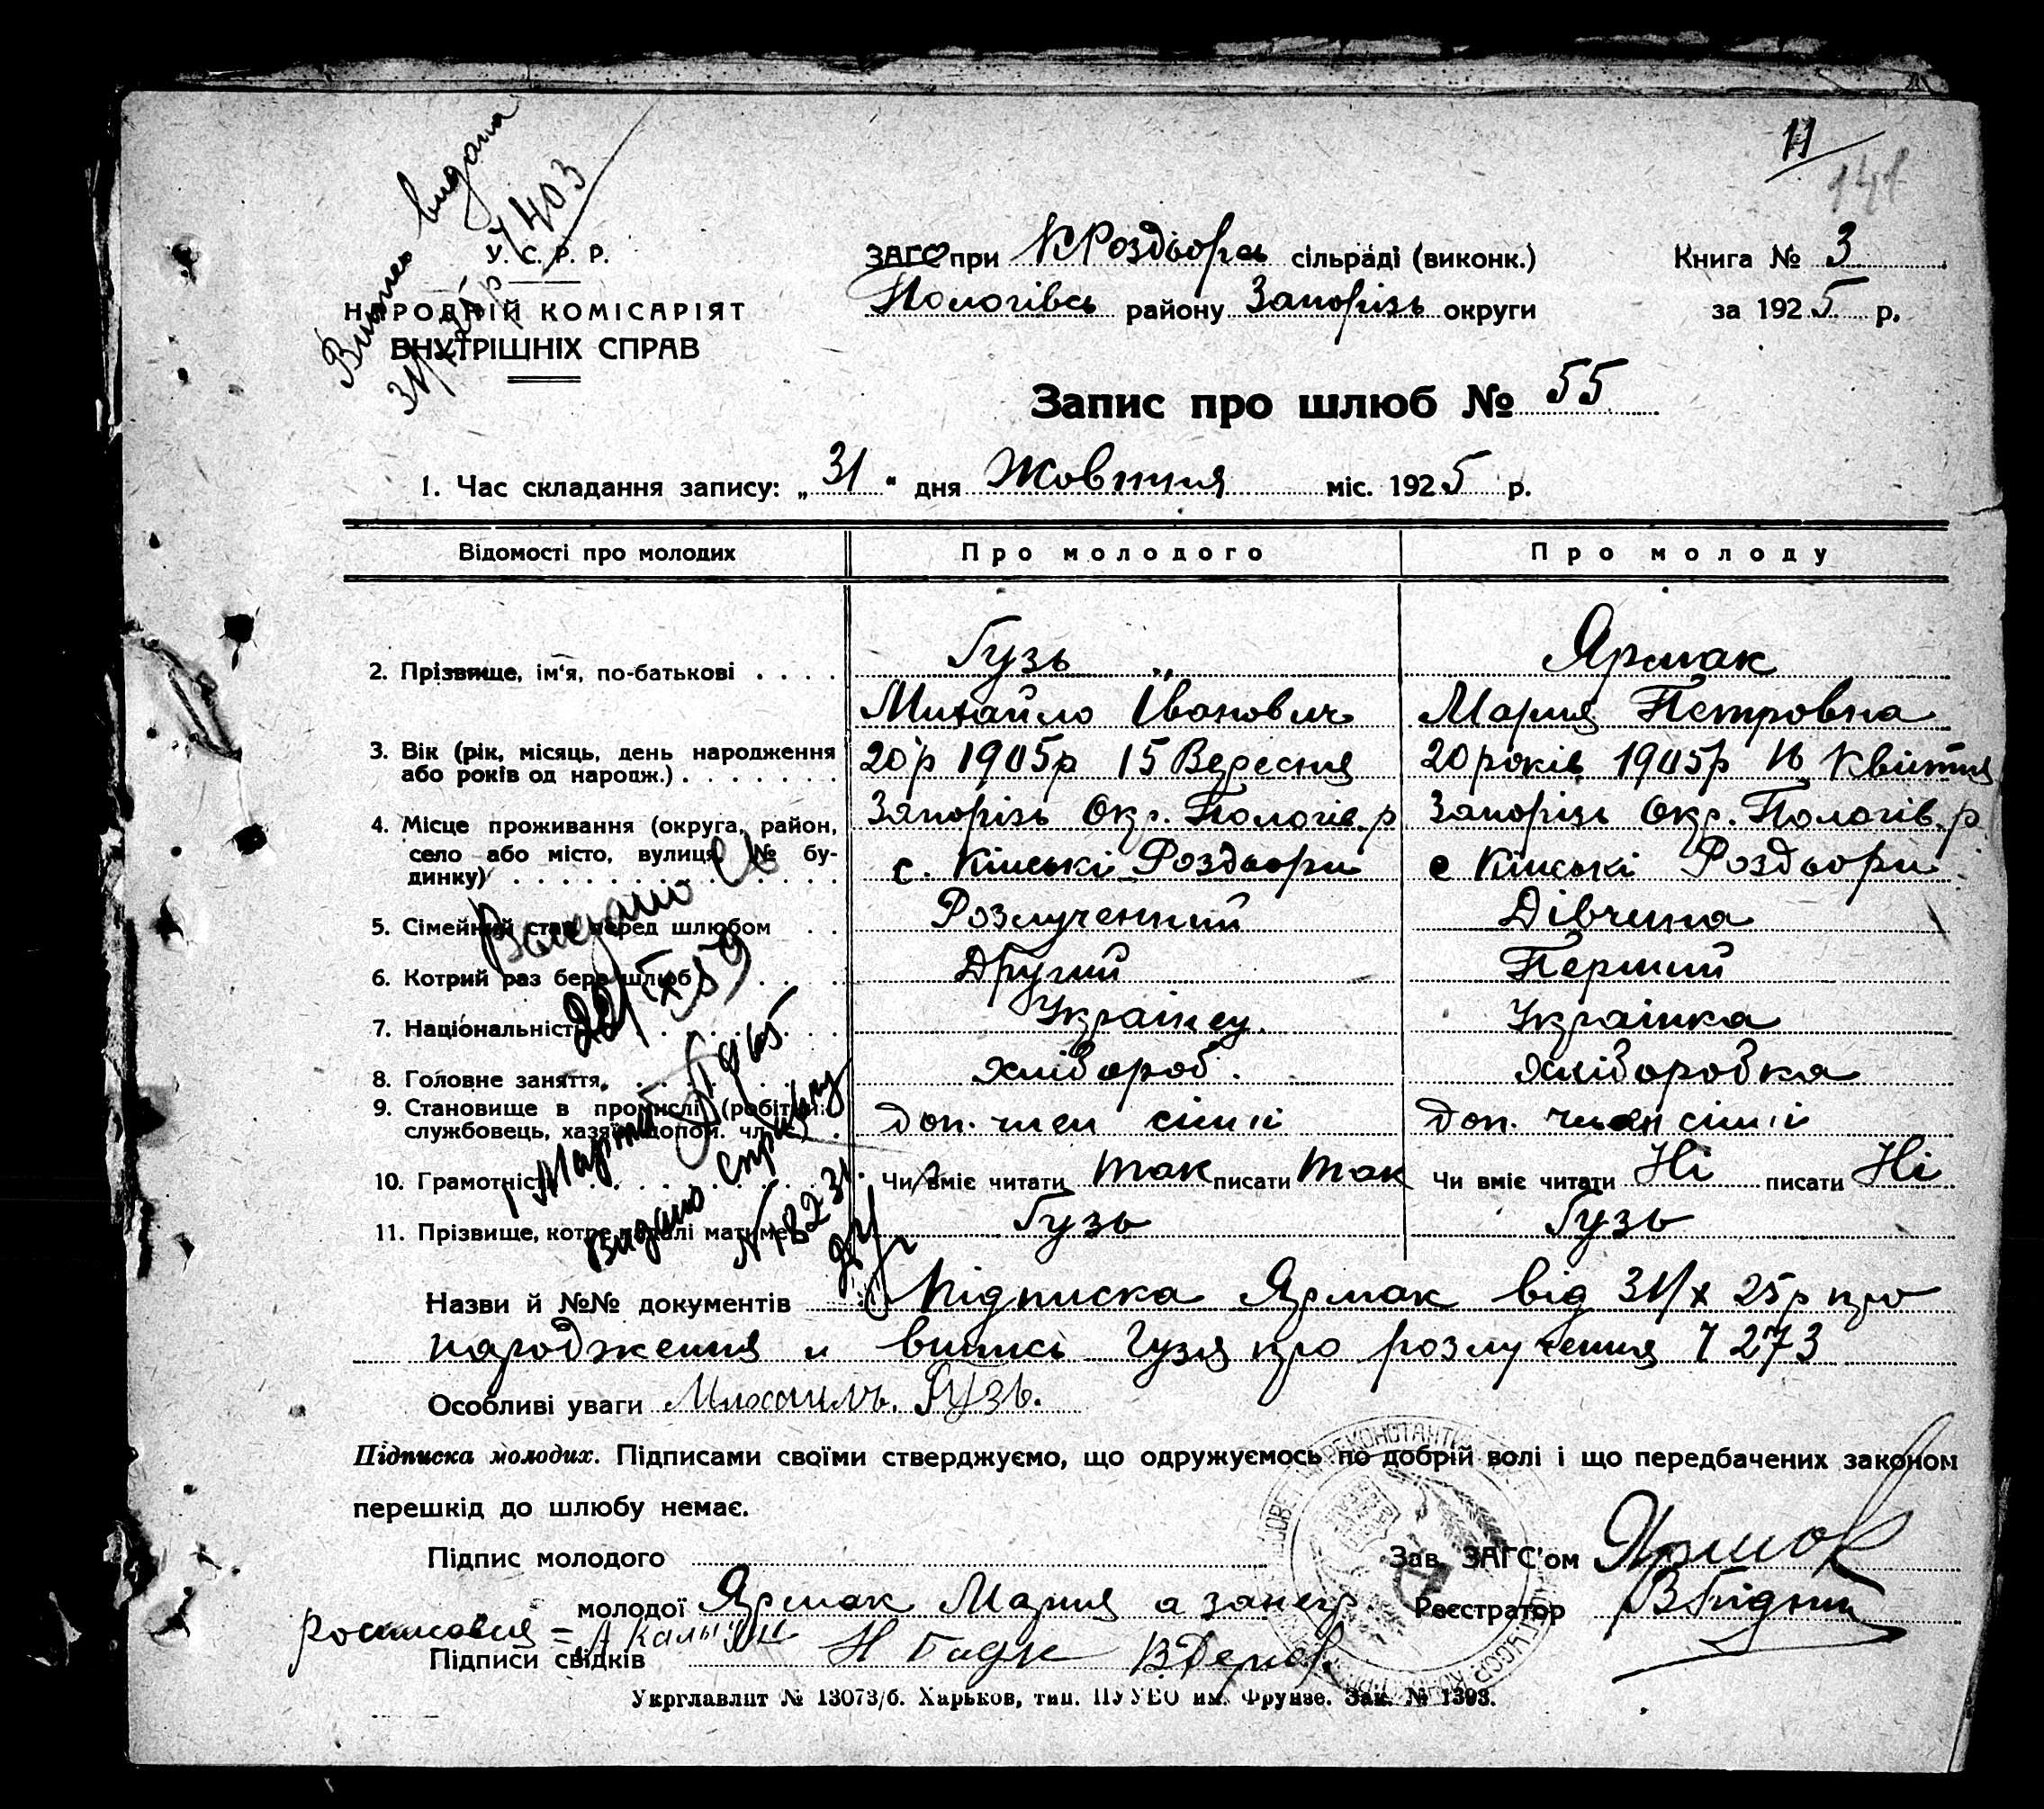 11
141
Випись видана
31/X 25р
№ 403
У. С. Р. Р.
НАРОДНІЙ КОМІСАРІЯТ
ВНУТРІШНІХ СПРАВ
ЗАГС при К Роздьорсь сільраді (виконк.)
Пологівсь району Запорізь округи
Книга № 3
за 1925 р.
Запис про шлюб № 55
1. Час складання запису: „31“ дня Жовтня міс. 1925 р.
Відомості про молодих Про молодого Про молоду
2. Прізвище, ім'я, по-батькові . . . . Гузь Ярмак
Михайло Іванович Мария Петровна
3. Вік (рік, місяць, день народження 20 р 1905р 15 Вересня 20 років 1905р Квітня
або років од народж.) . . . . . . .
4. Місце проживання (округа, район, Запорізь Окр. Пологів. р Запорізь Окр. Пологів. р
село або місто, вулиця, № бу- с. Кінські Роздьори с Кінські Роздьори
динку) . . . . . . . . . . . . . . .
5. Сімейний стан перед шлюбом . . Розлученний Дівчина
6. Котрий раз бере шлюб . . . . . Другий Перший
7. Національність . . . . . . . . . Українец Українка
8. Головне заняття . . . . . . . . . хлібороб. хліборобка
9. Становище в промислі (робітн.
службовець, хазяїн, допом. чл. с.) . доп. член сімії доп. член сімії
10. Грамотність . . . . . . . . . . . Чи вміє читати так писати так Чи вміє читати Ні писати Ні
11. Прізвище, котре надалі матиме Гузь Гузь
Видано
22/IX 59
1 Марта 1965
видано справку
Назви й №№ документів Підписка Ярмак від 31/X 25р про
народження и випись Гузя про розлучення № 273
Особливі уваги Михаилъ. Гузь.
Підписка молодих. Підписами своїми стверджуємо, що одружуємось по добрій волі і що передбачених законом
перешкід до шлюбу немає.
Підпис молодого Зав. ЗАГС'ом Ярмак
молодої Ярмак Мария а за негр Реєстратор
Підписи свідків
Укрглавлит № 13073/б. Харьков, тип. ПУ УВО им. Фрунзе. Зак. № 1393.